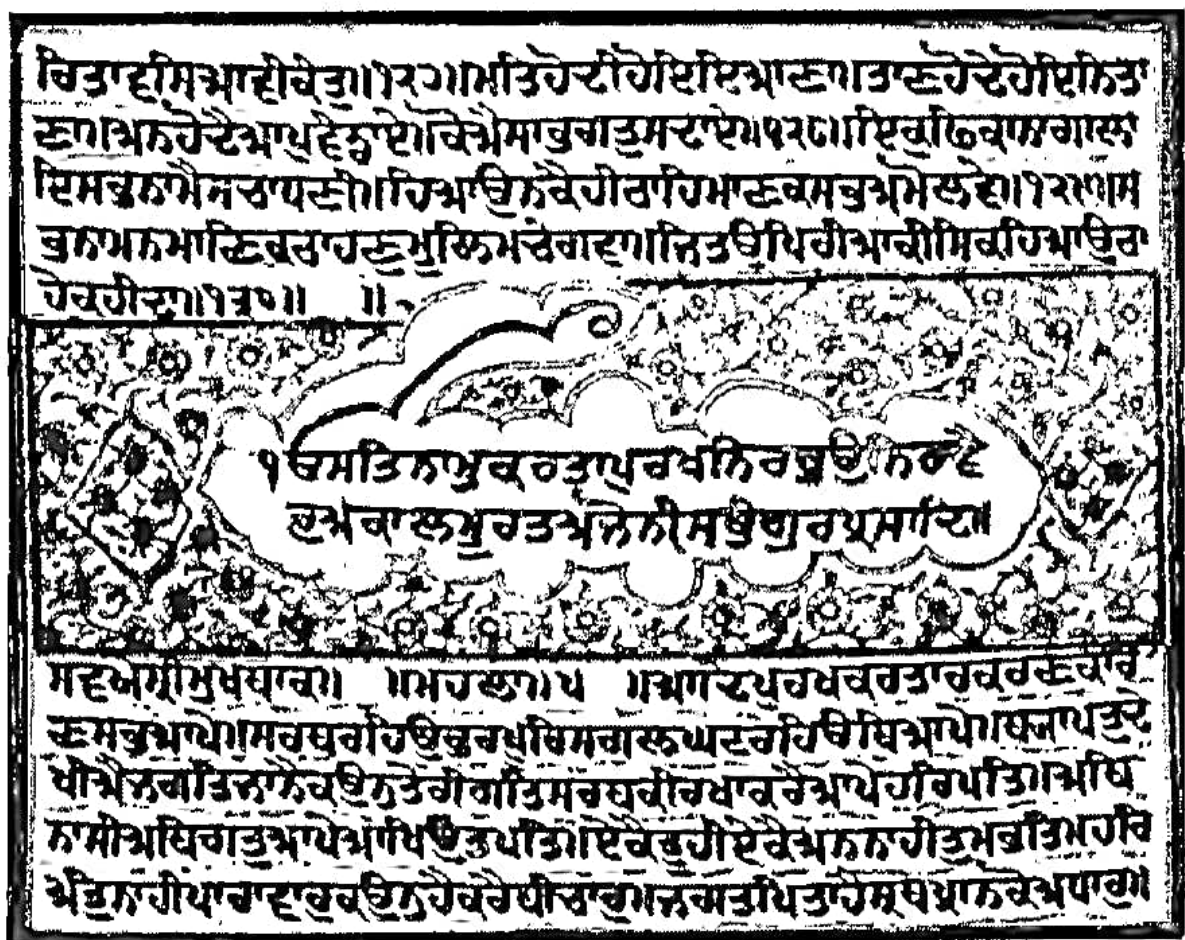 ਰਿਤਾਵਸਿਆਵੀਕੰਤੁ॥੧੨੭॥ਮਤਿਹੋਦੀਹੋਇਇਆਣਾ॥ਤਾਣਹੋਦੇਹੋਇਨਿਤਾ
ਣਾ॥ਅਨਹੋਦੈਆਪੁਵੰਡਾਏ॥ਕੋਐਸਾਭਗਤੁਸਦਾਏ॥੧੨੮॥ਇਕੁਫਿਕਾਨਗਾਲਾ
ਇਸਭਨਾਮੈਸਚਾਧਣੀ॥ਹਿਆਉਨਕੈਹੀਠਾਹਿਮਾਣਕਸਭਅਮੋਲਵੇ॥੧੨੯॥ਸ
ਭਨਾਮਨਮਾਣਿਕਠਾਹਣੁਮੂਲਿਮਚਾਂਗਵਾ॥ਜੇਤਉਪਿਰੀਆਦੀਸਿਕਹਿਆਉਨਠਾ
ਹੇਕਹੀਦਾ॥੧੩੦॥ ॥
ੴਸਤਿਨਾਮੁਕਰਤਾਪੁਰਖੁਨਿਰਭਉਨਿਰਵੈ
ਰੁਅਕਾਲਮੂਰਤਿਅਜੂਨੀਸੈਭੰਗੁਰਪ੍ਰਸਾਦਿ॥
ਸਵਯੇਸ੍ਰੀਮੁਖਬਾਕ੍ਯ॥ ॥ਮਹਲਾ॥੫ ॥ਆਦਿਪੁਰਖਕਰਤਾਰਕਰਣਕਾਰ
ਣਸਭਆਪੇ॥ਸਰਬਰਹਿਓਭਰਪੂਰਿਸਗਲਘਟਰਹਿਓਬਿਆਪੇ॥ਬ੍ਯਾਪਤੁਦੇ
ਖੀਐਜਗਤਿਜਾਨੈਕਉਨੁਤੇਰੀਗਤਿਸਰਬਕੀਰਖ੍ਯਾਕਰੈਆਪੇਹਰਿਪਤਿ॥ਅਬਿ
ਨਾਸੀਅਬਿਗਤੁਆਪੇਆਪਿਉਤਪਤਿ॥ਏਕੈਤੂਹੀਏਕੈਅਨਨਾਹੀਤੁਮਭਤਿ॥ਹਰਿ
ਅੰਤੁਨਾਹੀਪਾਰਾਵਾਰੁਕਉਨੁਹੈਕਰੈਬੀਚਾਰੁ॥ਜਗਤਪਿਤਾਹੈਸ੍ਰਬਪ੍ਰਾਨਕੋਅਧਾਰੁ॥